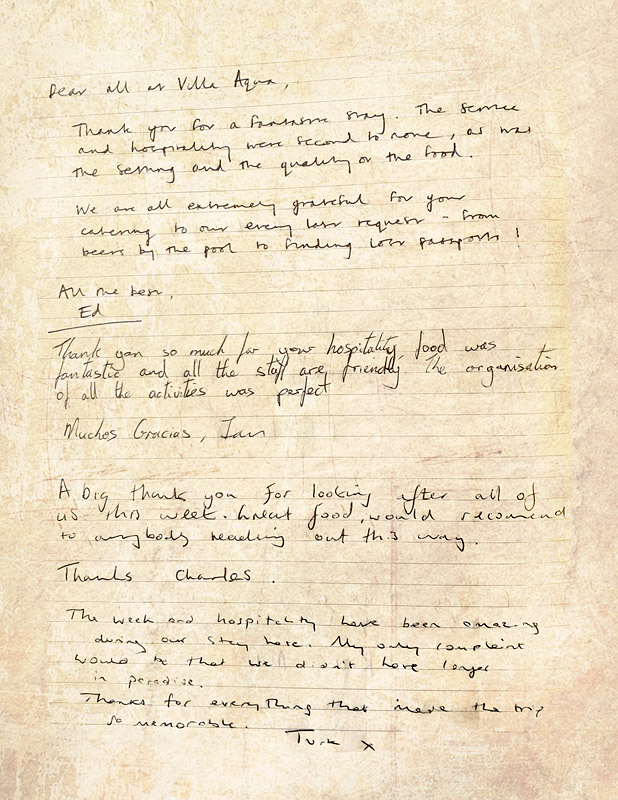 Dear all at Villa Aqua,
Thank you for a fantastic stay. The service
and hospitality were second to none, as was
the setting and the quality of the food.
We are all extremely grateful for your
catering to our every last request - from
beers by the pool to finding lost passports!
All the best,
Ed
Thank you so much for your hospitality, food was
fantastic and all the staff are friendly the organisation
of all the activities was perfect
Muchos Gracias, Ian
A big thank you for looking after all of
us this week. Great food, would recomend
to anybody heading out this way.
Thanks Charles.
The week and hospitality have been amazing
during our stay here. My only complaint
would be that we didn't have longer
in paradise.
Thanks for everything that made the trip
so memorable.
Turk x